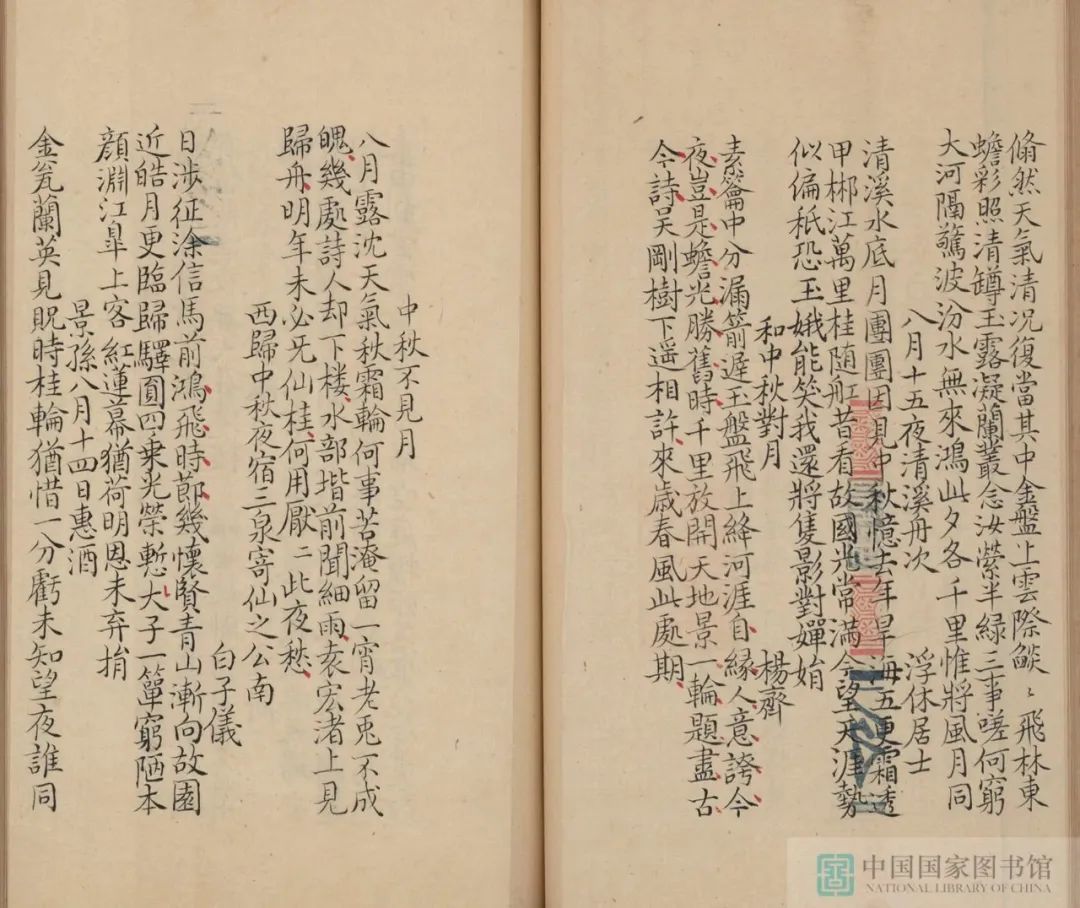 翛然天氣清况復當其中金盤上雲際燄〻飛林東
蟾彩照清罇玉露凝蘭叢念汝縈半緑三事嗟何窮
大河隔驚波汾水無來鴻此夕各千里惟將風月同
八月十五夜清溪舟次 浮休居士
清溪水底月團團因見中秋憶去年旱海五更霜透
甲郴江萬里桂随舡昔看故國光常滿今望天涯勢
似偏秖恐玉娥能笑我還將隻影對嬋始
和中秋對月 楊齊
素籥中分漏箭遲玉盤飛上絳河涯自緣人意誇今
夜豈是蟾光勝舊時千里放開天地景一輪題盡古
今詩吴剛樹下遥相許來歳春風此處期
中秋不見月
八月露沈天氣秋霜輪何事苦淹留一宵老兎不成
魄幾處詩人却下楼水部堦前聞細雨袁宏渚上見
歸舟明年未必旡仙桂何用厭二此夜愁
西歸中秋夜宿三泉寄仙之公南
白子儀
日渉征涂信馬前鴻飛時莭幾懷賢青山漸向故園
近皓月更臨歸驛圓四乗光榮慙大子一簞窮陋本
顔淵江皐上客紅蓮幕猶荷明恩未弃捐
景孫八月十四日惠酒
金瓮蘭英見貺時桂輪猶惜一分虧未知望夜誰同
中国国家图书馆
NATIONAL LIBRARY OF CHINA